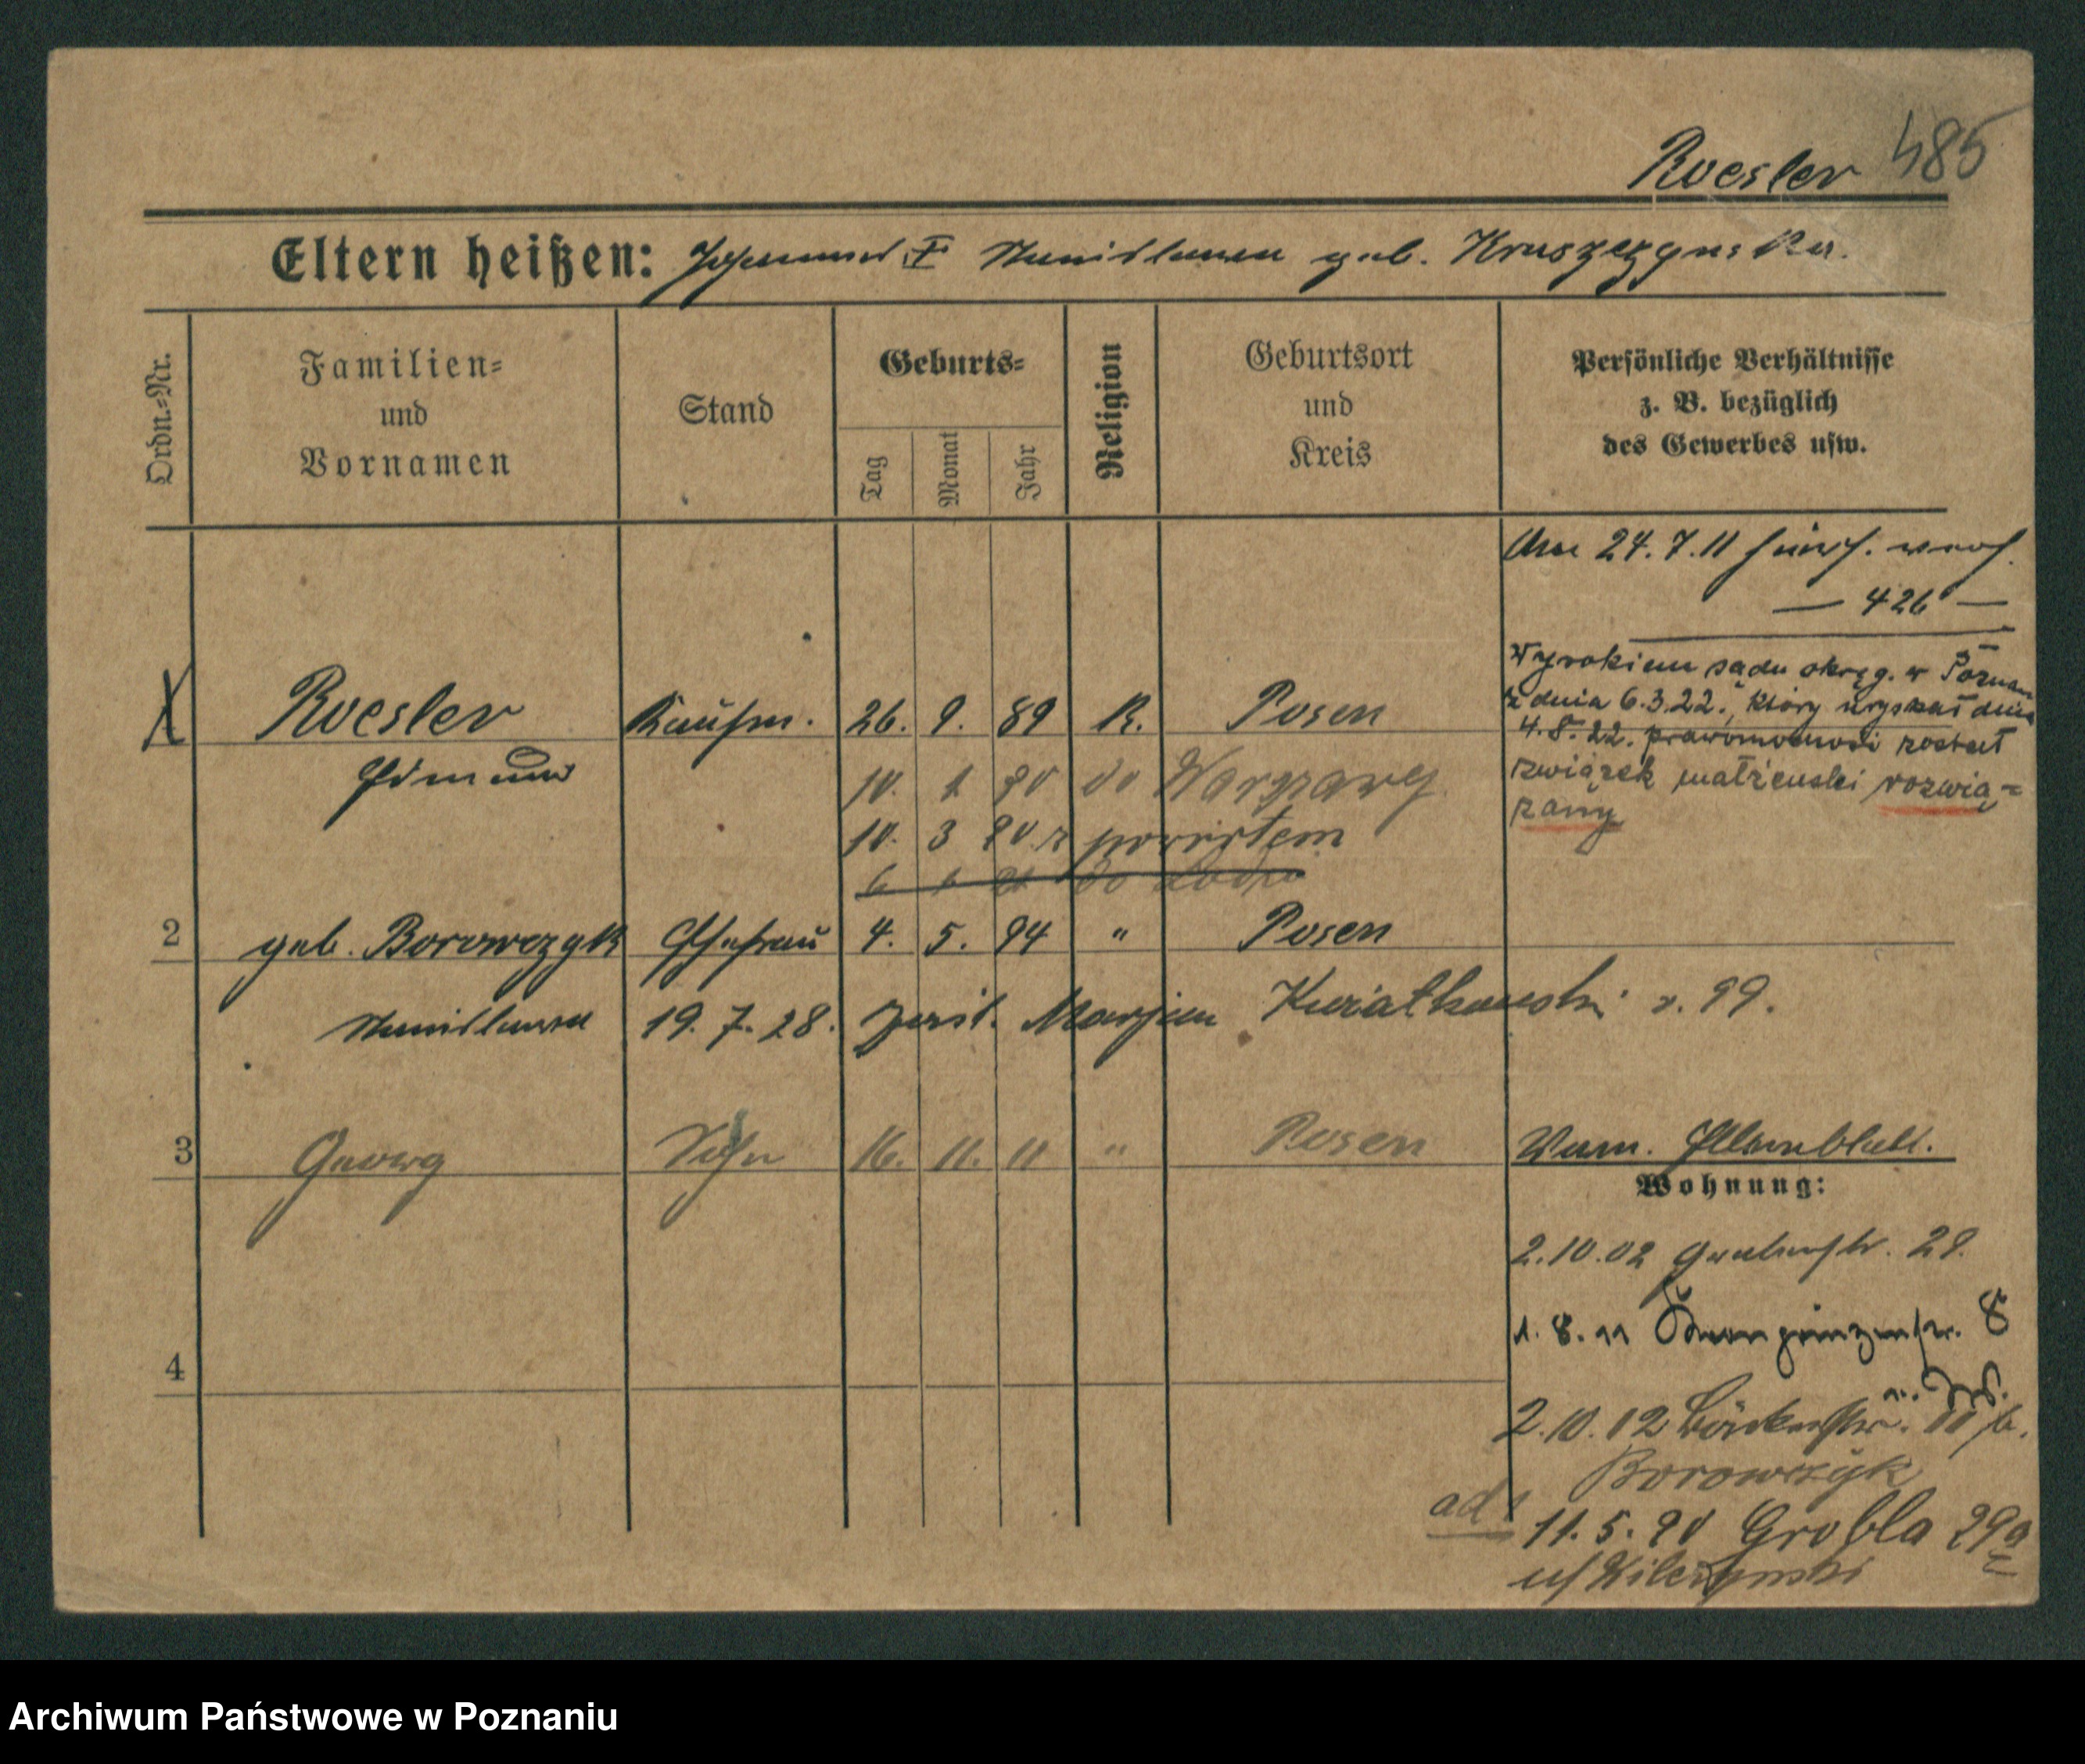 Roesler 485
Eltern heißen: Stanislawa geb. Kruszczynska.
Ordn.-Nr.
Familien-
und
Vornamen
Stand
Geburts-
Tag
Monat
Jahr
Religion
Geburtsort
und
Kreis
Persönliche Verhältnisse
z. B. bezüglich
des Gewerbes usw.
24.7.11
— 426 —
Wyrokiem sądu okręg. w Poznan
z dnia 6.3.22., który uzyskał dnia
4.8.22. prawomocność został
związek małżeński rozwią-
zany
Roesler Kaufm. 26. 9. 89 K. Posen
Edmund
10. 1 20 do Warszawy
10. 3 20 z powrotem
6 do
2 geb. Borowczyk Ehefrau 4. 5. 94 " Posen
Stanislawa 19.7.28. Marjan Kwiatkowski 99.
3 Georg Sohn 16. 11. 11 " Posen
Wohnung:
2.10.02 Grabenstr. 29.
1.8.11 Kronprinzenstr. 8
2.10.12 Bäckerstr. 11 b.
Borowczyk
4
ad 1 11.5.20 Grobla 29a
Archiwum Państwowe w Poznaniu